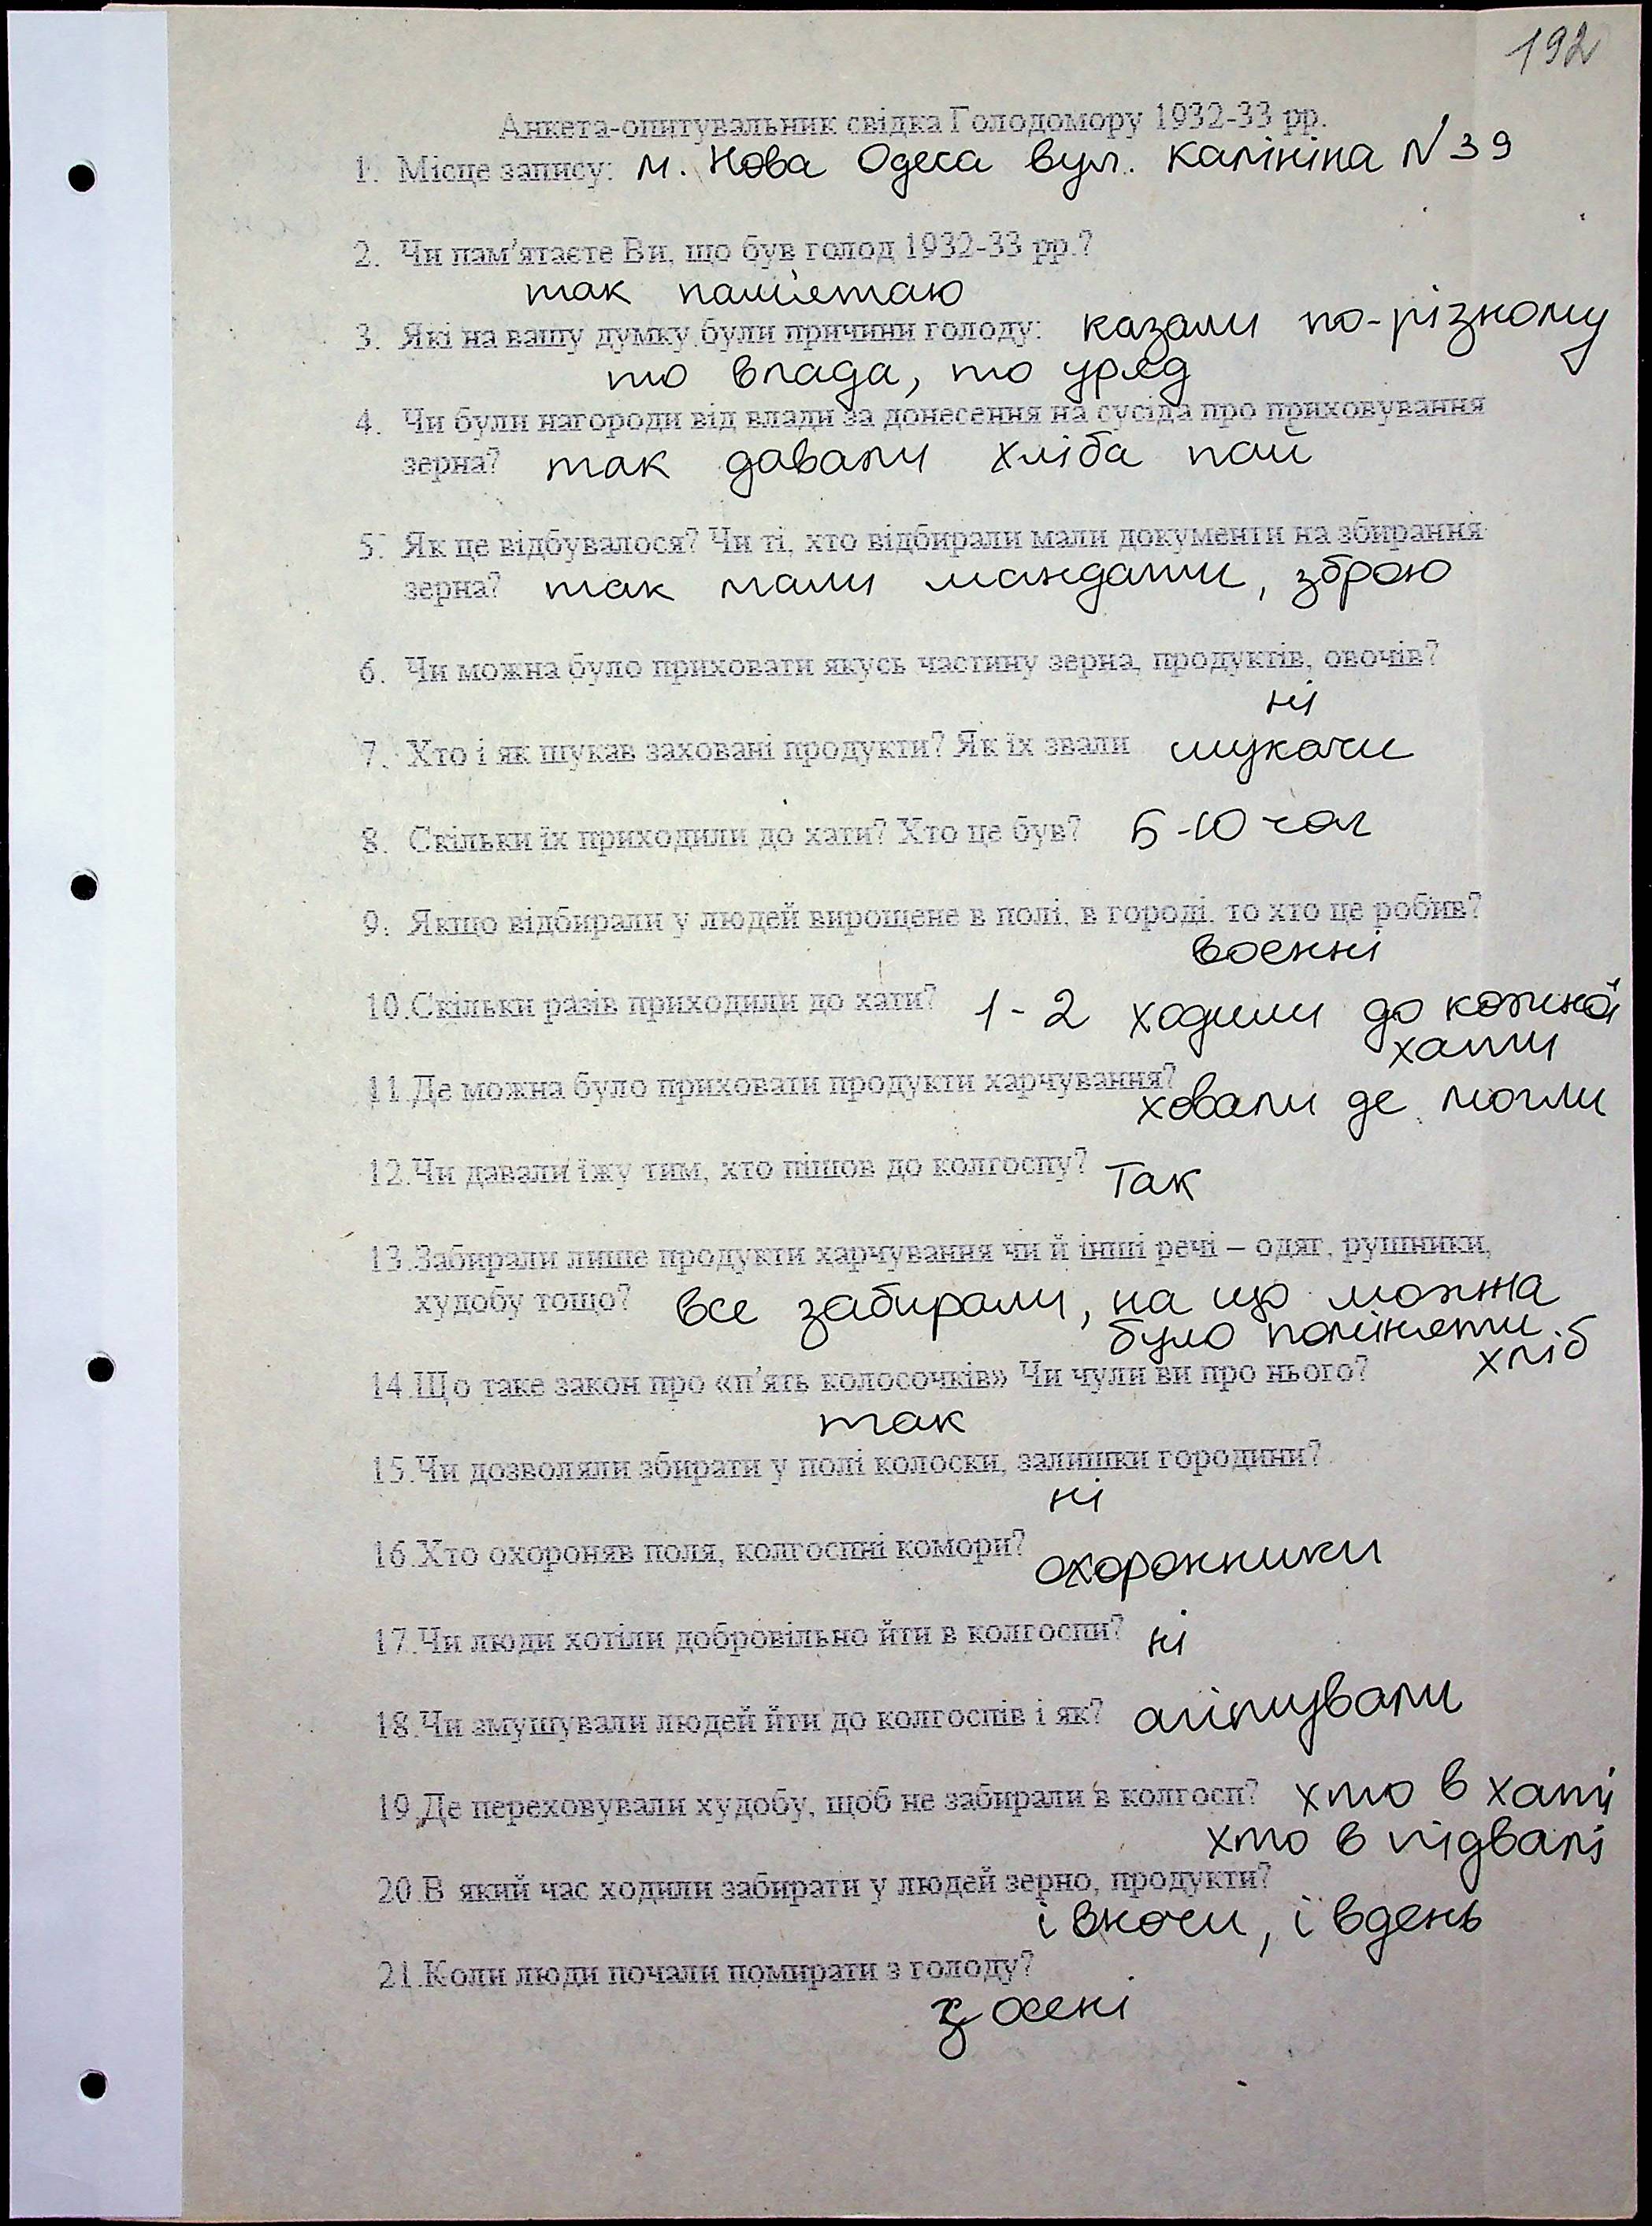 192
Анкета-опитувальник свідка Голодомору 1932-33 рр.
1. Місце запису: м. Нова Одеса вул. Калініна N 39
2. Чи пам'ятаєте Ви, що був голод 1932-33 рр.?
так пам'ятаю
3. Які на вашу думку були причини голоду: казали по-різному
то влада, то уряд
4. Чи були нагороди від влади за донесення на сусіда про приховування
зерна? так давали хліба пай
5. Як це відбувалося? Чи ті, хто відбирали мали документи на збирання
зерна? так мали мандати, зброю
6. Чи можна було приховати якусь частину зерна, продуктів, овочів?
ні
7. Хто і як шукав заховані продукти? Як їх звали шукачи
8. Скільки їх приходили до хати? Хто це був? 5-10 чол
9. Якщо відбирали у людей вирощене в полі, в городі, то хто це робив?
воєнні
10. Скільки разів приходили до хати? 1-2 ходили до кожної
хати
11. Де можна було приховати продукти харчування?
ховали де могли
12. Чи давали їжу тим, хто пішов до колгоспу? Так
13. Забирали лише продукти харчування чи й інші речі – одяг, рушники,
худобу тощо? все забирали, на що можна
було поміняти
хліб
14. Що таке закон про «п'ять колосочків» Чи чули ви про нього?
так
15. Чи дозволяли збирати у полі колоски, залишки городини?
ні
16. Хто охороняв поля, колгоспні комори? охоронники
17. Чи люди хотіли добровільно йти в колгоспи? ні
18. Чи змушували людей йти до колгоспів і як? агітували
19. Де переховували худобу, щоб не забирали в колгосп? хто в хаті
хто в підвалі
20. В який час ходили забирати у людей зерно, продукти?
і вночи, і вдень
21. Коли люди почали помирати з голоду?
з осені